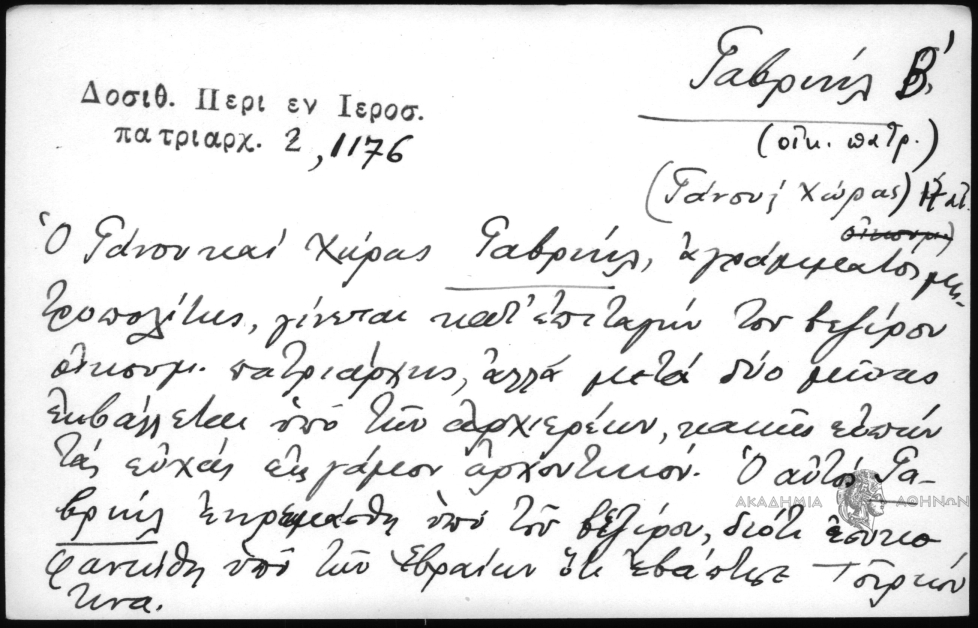 Γαβριήλ Β΄.
Δοσιθ. Περι εν Ιεροσ.
πατριαρχ. 2, 1176
(οἰκ. πατρ.)
(Γάνου & χώρας)
Ὁ Γάνου καί Χώρας Γαβριήλ, ἀγράμματος μη-
τροπολίτης, γίνεται κατ' ἐπιταγήν τοῦ βεζίρου
οἰκουμ. πατριάρχης, ἀλλά μετά δύο μῆνας
ἐκβάλλεται ὑπό τῶν ἀρχιερέων, κακῶς εἰπών
τάς εὐχάς εἰς γάμον ἀρχοντικόν. Ὁ αὐτός Γα-
βριήλ ἐκρεμάσθη ὑπό τοῦ βεζίρου, διότι ἐσυκο
φαντήθη ὑπό τῶν Ἑβραίων ὅτι ἐβάπτισε Τοῦρκόν
τινα.
ΑΚΑΔΗΜΙΑ ΑΘΗΝΩΝ